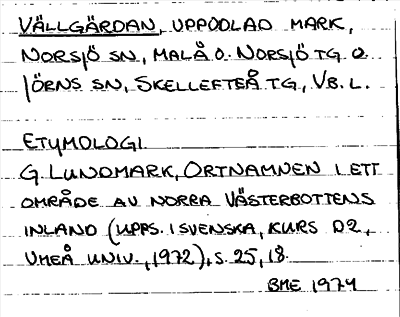 VÄLLGÄRDAN, UPPODLAD MARK,
NORSJÖ SN, MALÅ O. NORSJÖ TG O
JÖRNS SN, SKELLEFTEÅ TG., VB. L.
ETYMOLOGI
G. LUNDMARK, ORTNAMNEN I ETT
OMRÅDE AV NORRA VÄSTERBOTTENS
INLAND (UPPS. I SVENSKA, KURS D2,
UMEÅ UNIV., 1972), S. 25, 18.
BME 1974